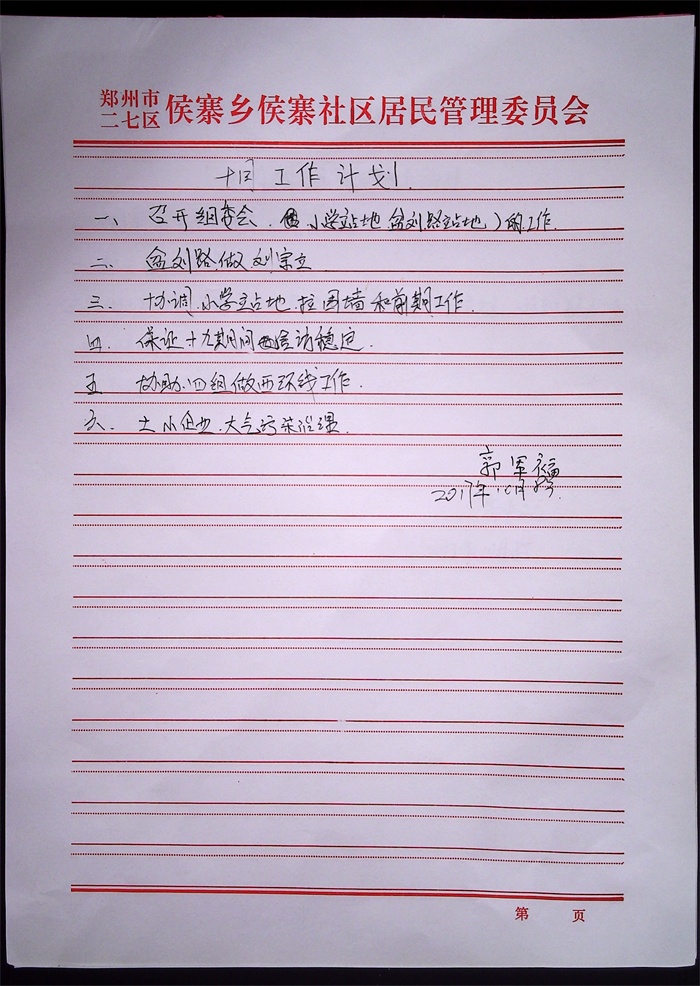 郑州市
二七区
侯寨乡侯寨社区居民管理委员会
十月工作计划.
一、召开组委会.(小学占地 盆刘路占地)的工作.
二、盆刘路.做刘宗立
三、协调.小学占地.拉围墙和前期工作.
四.保证十九期间信访稳定.
五 协助.四组做西环线工作.
六、土小企业.大气污染治理.
郭军福
2017年10月8号.
第 页